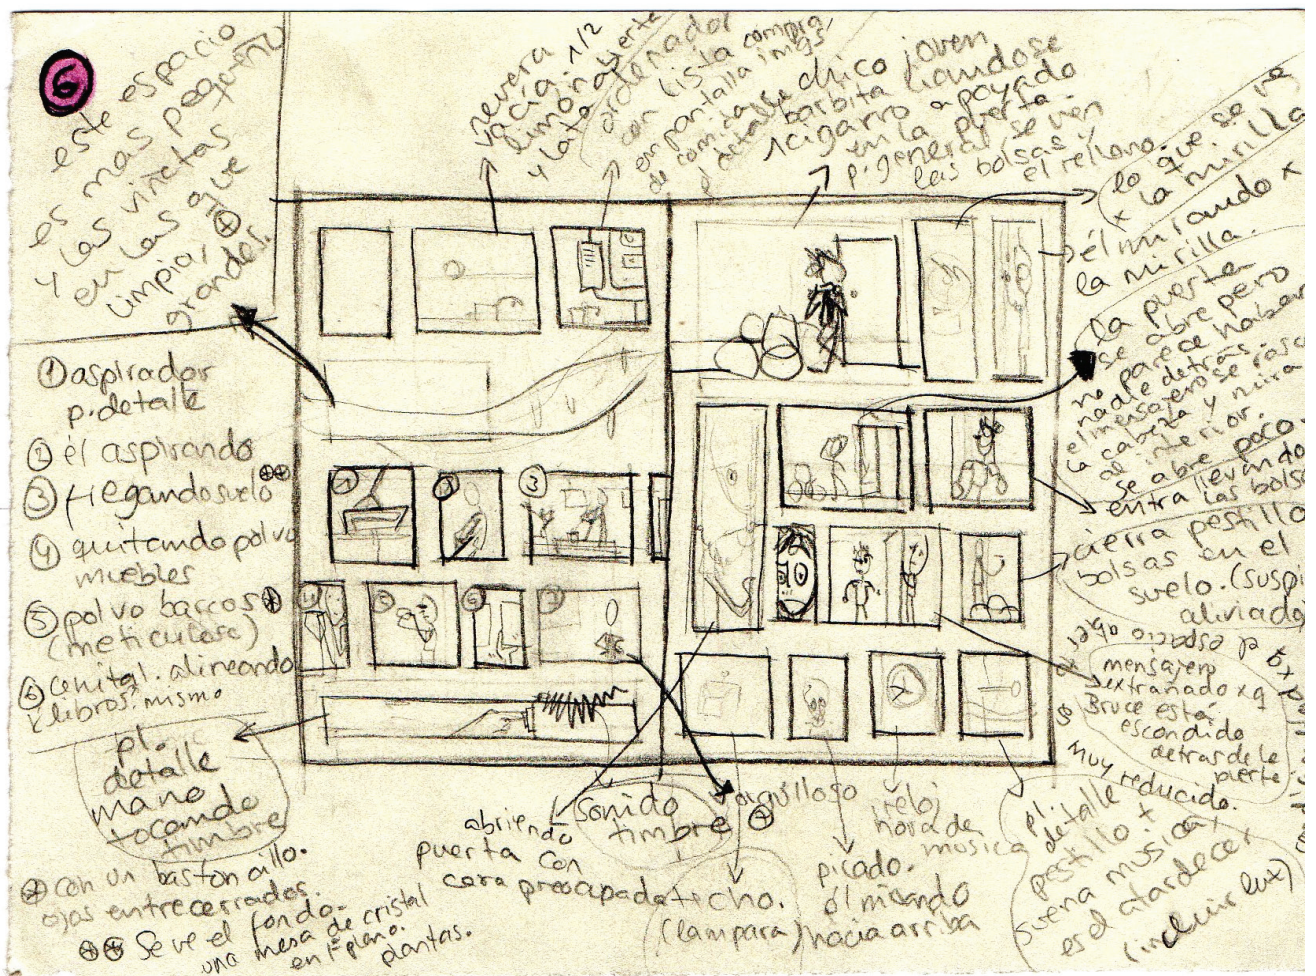 6
este espacio
es mas pequeño
y las viñetas
en las que
limpia
grandes.
nevera
vacía. 1/2
limón
y lata abierta
ordenador
con lista compra,
en pantalla imgs
de comida
p. detalle
chico joven
barbita liandose
1 cigarro apoyado
en la puerta.
p. general se ven
las bolsas y
el rellano.
lo que se ve
x la mirilla
él mirando x
la mirilla.
la puerta
se abre pero
no parece haber
nadie detrás.
el mensajero se rasca
la cabeza y mira
al interior.
se abre poco.
entra llevando
las bolsas
cierra pestillo
bolsas en el
suelo. (suspira
aliviado
mensajero
extrañado x q
Bruce está
escondido
detras de la
puerta
Muy reducido.
① aspirador
p. detalle
② él aspirando
③ fregando suelo ⊛⊛
④ quitando polvo
muebles
⑤ polvo barcos ⊛
(meticuloso)
⑥ cenital. alineando
libros. mismo
1
3
4
5
6
7
pl.
detalle
mano
tocando
timbre
⊛ con un bastoncillo.
ojos entrecerrados.
⊛⊛ Se ve el fondo.
una mesa de cristal
en 1er plano.
plantas.
abriendo
puerta con
cara preocupada
sonido
timbre
orgulloso
⑦
techo.
(lampara)
picado.
él mirando
hacia arriba
reloj
hora de
musica
pl.
detalle
pestillo +
suena musica,
es el atardecer
(incluir luz)